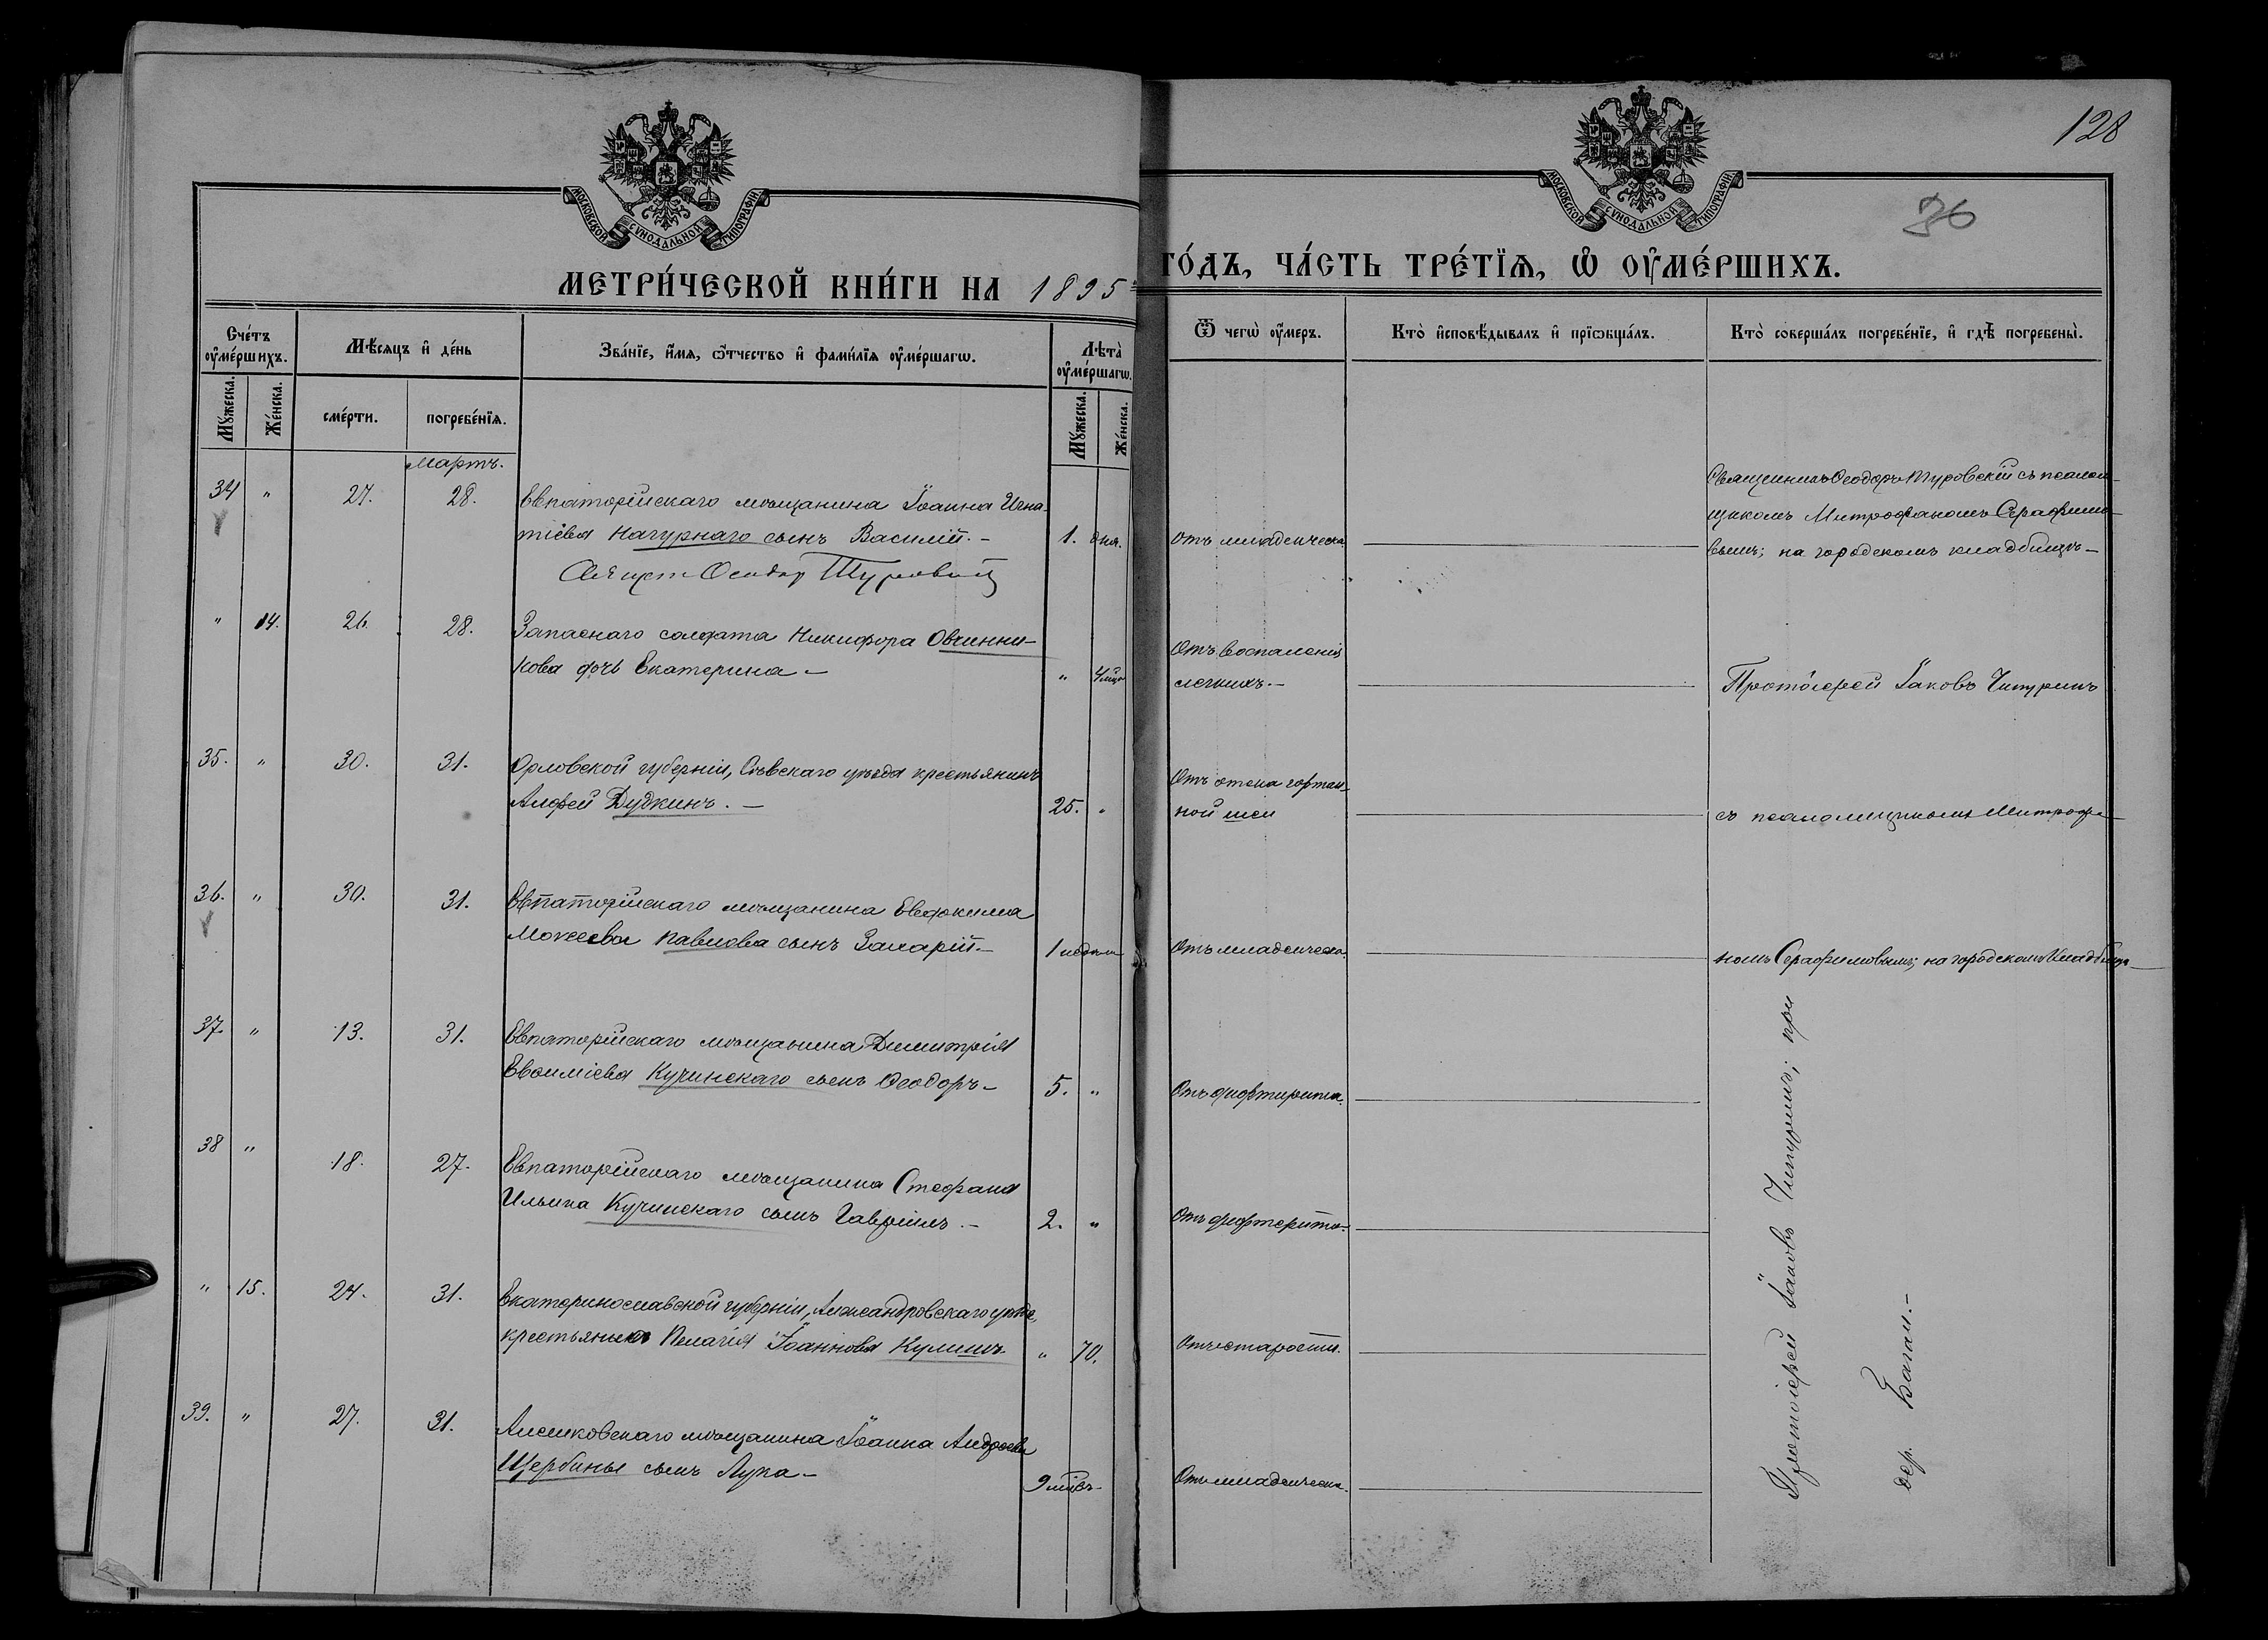 128
36
МОСКОВСКОЙ СѴНОДАЛЬНОЙ ТИПОГРАФІИ
МОСКОВСКОЙ СѴНОДАЛЬНОЙ ТИПОГРАФІИ
МЕТРИ́ЧЕСКОЙ КНИ́ГИ НА 1895 ГО́ДЪ, ЧА́СТЬ ТРЕ́ТЇѦ, Ѡ҆ ОУ҆МЕ́РШИХЪ.
Сче́тъ оу҆ме́ршихъ.
Мꙋ́жеска.
Же́нска.
Мѣ́сяцъ и҆ де́нь
сме́рти.
погребе́нїѧ.
Зва́нїе, и҆́мѧ, ѻ҆́тчество и҆ фами́лїѧ оу҆ме́ршагѡ.
Лѣ́та оу҆ме́ршагѡ.
Мꙋ́жеска.
Же́нска.
Ѿ чегѡ̀ оу҆́меръ.
Кто̀ и҆сповѣ́дывалъ и҆ прїѡбща́лъ.
Кто̀ соверша́лъ погребе́нїе, и҆ гдѣ̀ погребены̀.
Мартъ.
34 " 27. 28. Евпаторійскаго мѣщанина Іоанна Игна-
тіева Нагурнаго сынъ Василій.- 1. дня. Отъ младенческ.
Священникъ Ѳеодоръ Туровскій съ псалом-
щикомъ Митрофаномъ Серафимо-
вымъ; на городскомъ кладбищѣ-
Священ. Ѳеодор Туровскій
" 14. 26. 28. Запаснаго солдата Никифора Овчинни-
кова дочь Екатерина- " 4 мцъ Отъ воспаленія
легкихъ.- Протоіерей Іаковъ Чипуринъ
35. " 30. 31. Орловской губерніи, Сѣвскаго уѣзда крестьянинъ
Алфей Дудкинъ.- 25. " Отъ отека гортан-
ной шеи съ псаломщикомъ Митрофа-
36. " 30. 31. Евпаторійскаго мѣщанина Евдокима
Мокеева Павлова сынъ Захарій.- 1 недѣли Отъ младенческ.
номъ Серафимовымъ; на городскомъ кладбищѣ-
37. " 13. 31. Евпаторійскаго мѣщанина Димитрія
Евѳиміева Кучинскаго сынъ Ѳеодоръ- 5. " Отъ дифтирита.
38 " 18. 27. Евпаторійскаго мѣщанина Стефана
Ильина Кучинскаго сынъ Гавріилъ.- 2. " Отъ дифтерита.
" 15. 24. 31. Екатеринославской губерніи, Александровскаго уѣзда,
крестьянка Пелагія Іоаннова Кулишъ " 70. Отъ старости.
39. " 27. 31. Алешковскаго мѣщанина Іоанна Андреева
Щербины сынъ Лука- 9 мцъ- Отъ младенческ.
Протоіерей Іаковъ Чипуринъ; при
дер. Багаи.-